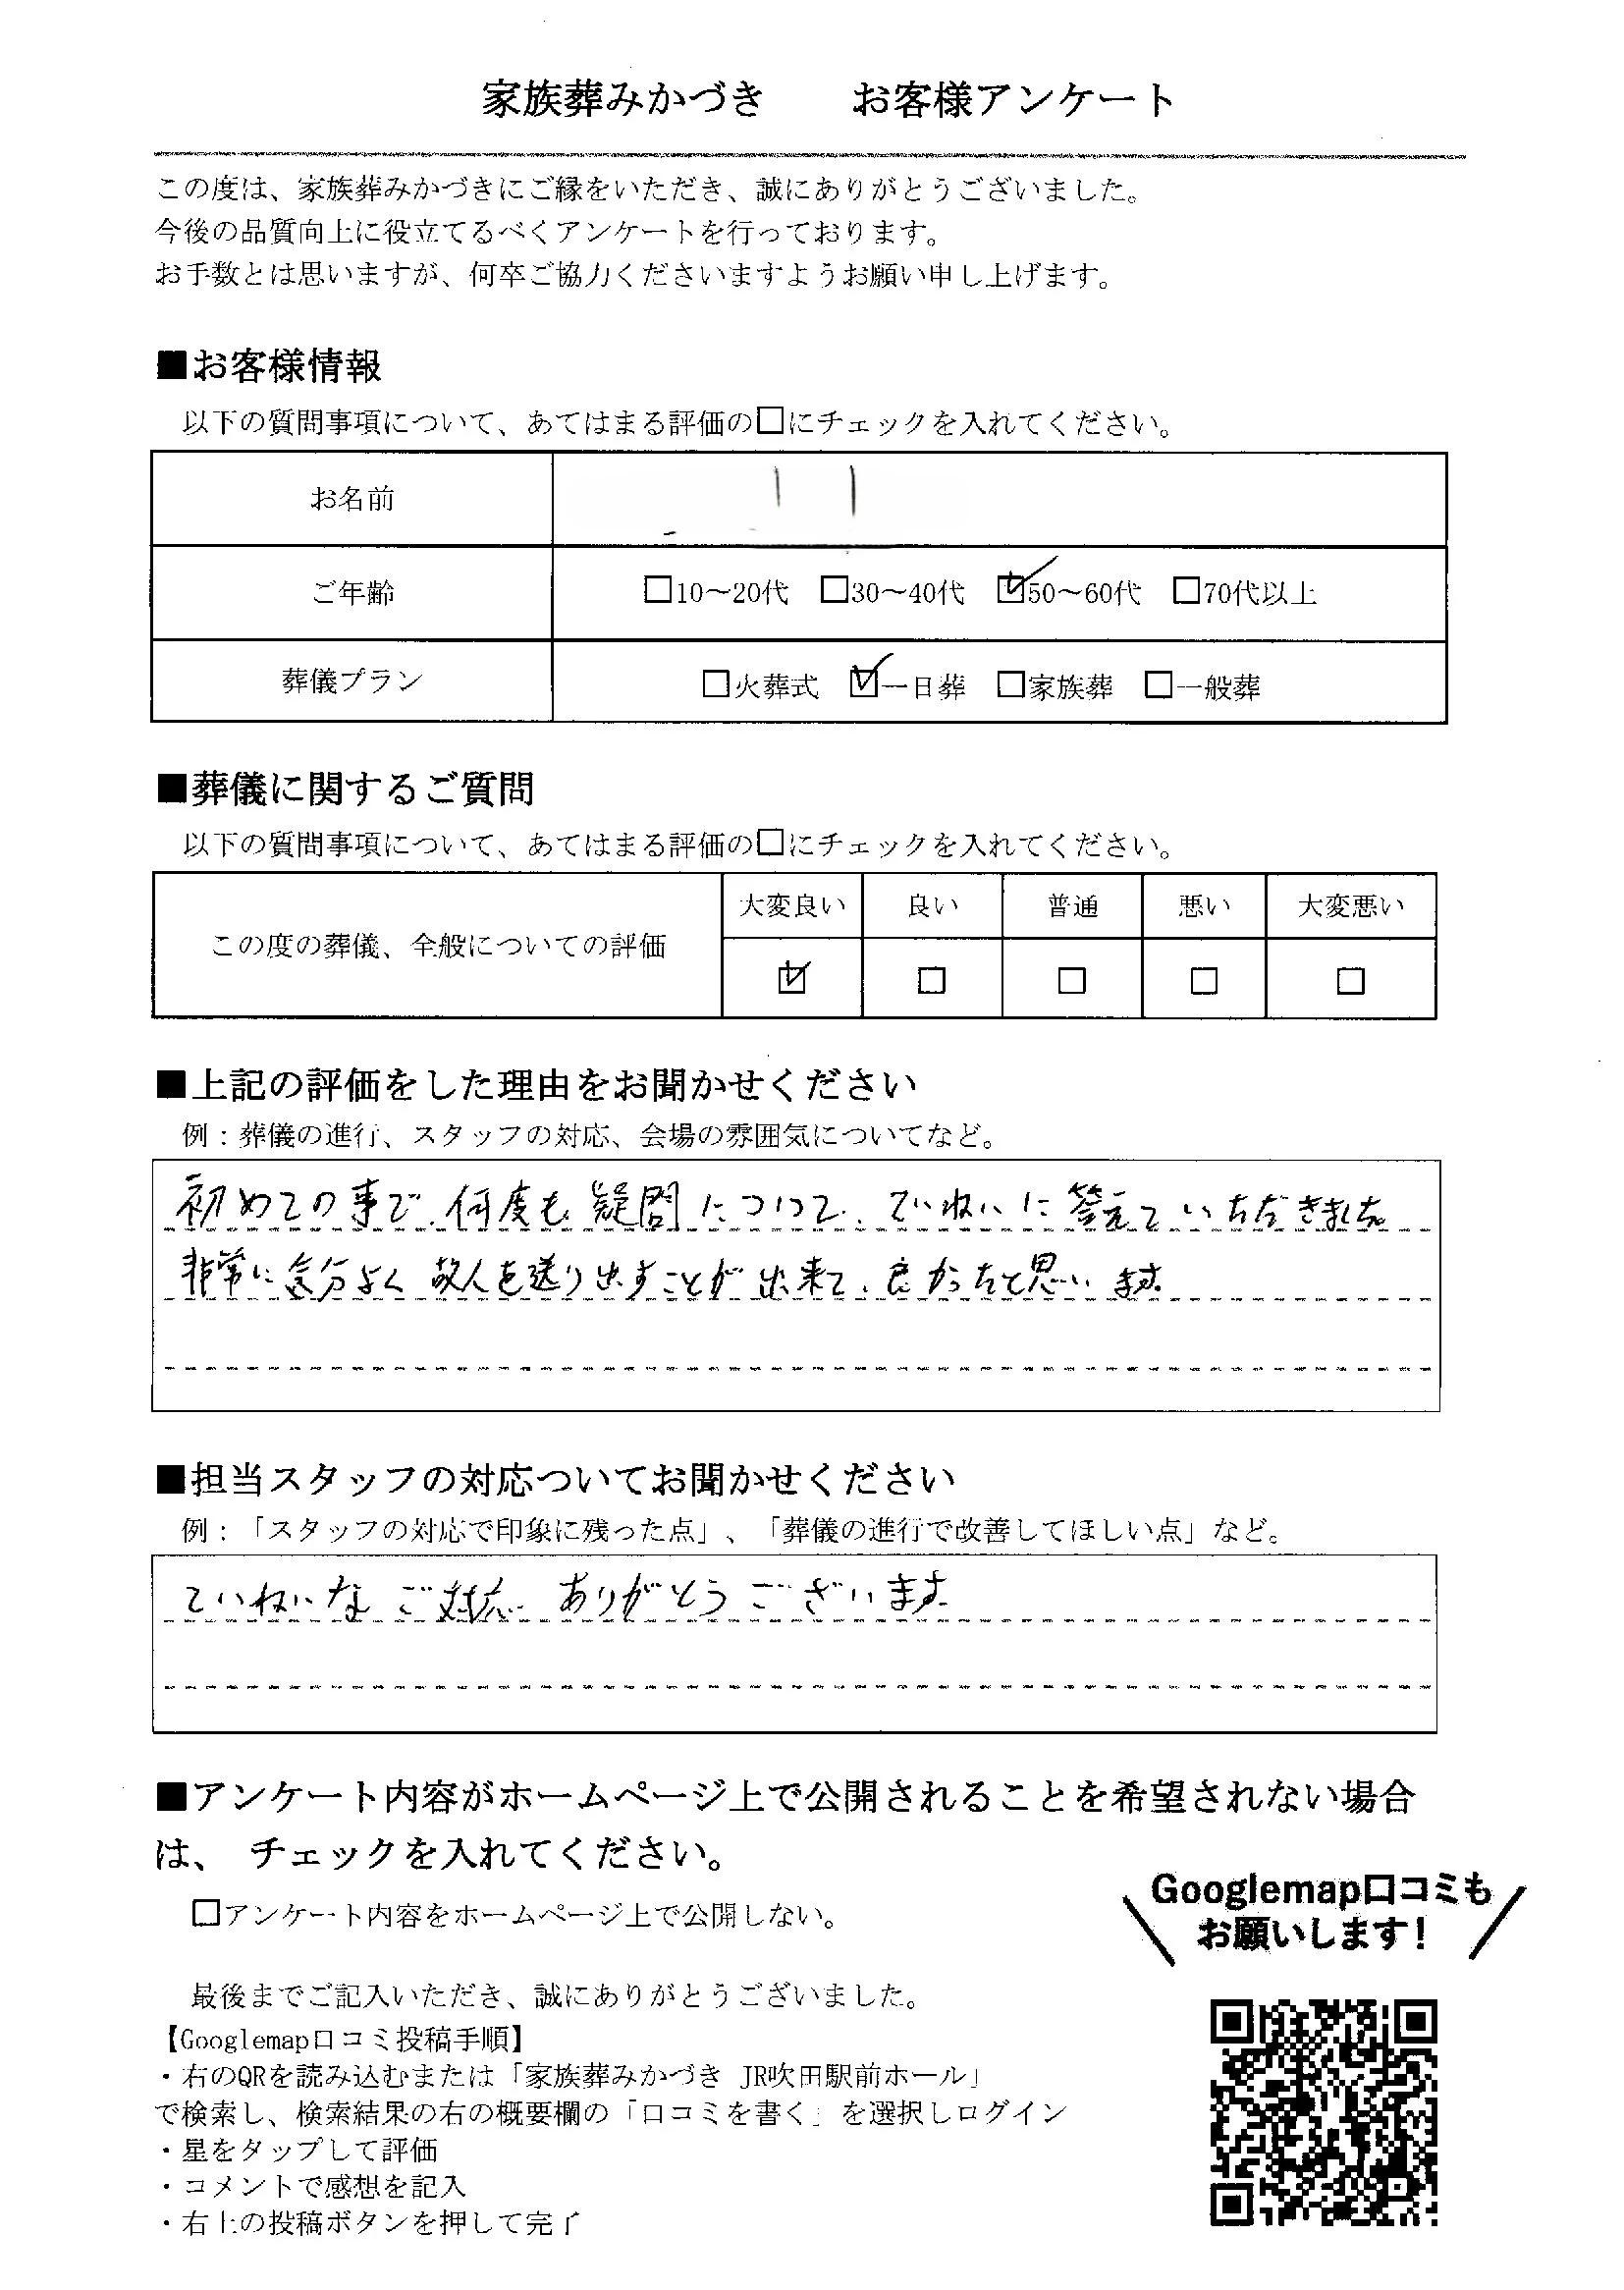 家族葬みかづき　　お客様アンケート
この度は、家族葬みかづきにご縁をいただき、誠にありがとうございました。
今後の品質向上に役立てるべくアンケートを行っております。
お手数とは思いますが、何卒ご協力くださいますようお願い申し上げます。
■お客様情報
以下の質問事項について、あてはまる評価の□にチェックを入れてください。
お名前
ご年齢　□10～20代　□30～40代　☑50～60代　□70代以上
葬儀プラン　□火葬式　☑一日葬　□家族葬　□一般葬
■葬儀に関するご質問
以下の質問事項について、あてはまる評価の□にチェックを入れてください。
大変良い　良い　普通　悪い　大変悪い
この度の葬儀、全般についての評価
☑　□　□　□　□
■上記の評価をした理由をお聞かせください
例：葬儀の進行、スタッフの対応、会場の雰囲気についてなど。
初めての事で、何度も疑問について、ていねいに答えていただきました。
非常に気分よく故人を送り出すことが出来て、良かったと思います。
■担当スタッフの対応ついてお聞かせください
例：「スタッフの対応で印象に残った点」、「葬儀の進行で改善してほしい点」など。
ていねいなご対応ありがとうございます
■アンケート内容がホームページ上で公開されることを希望されない場合
は、 チェックを入れてください。
□アンケート内容をホームページ上で公開しない。
Googlemap口コミも
お願いします！
最後までご記入いただき、誠にありがとうございました。
【Googlemap口コミ投稿手順】
・右のQRを読み込むまたは「家族葬みかづき JR吹田駅前ホール」
で検索し、検索結果の右の概要欄の「口コミを書く」を選択しログイン
・星をタップして評価
・コメントで感想を記入
・右上の投稿ボタンを押して完了